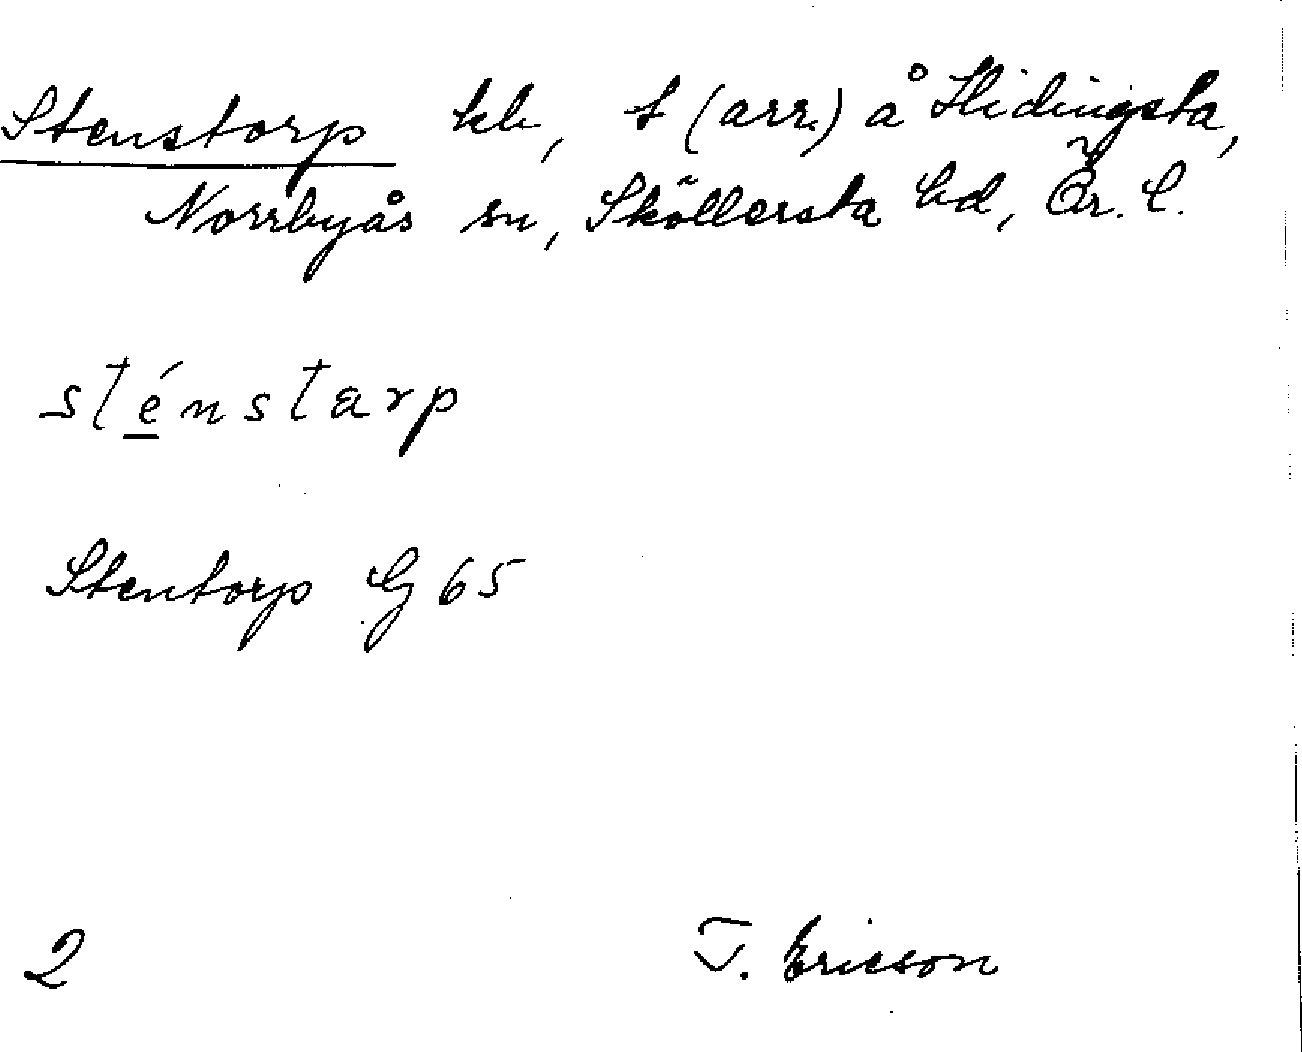 Stenstorp kb, t (arr.) å Hidingsta,
Norrbyås sn, Sköllersta hd, Ör. l.
sténstarp
Stentorp G 65
2 T. Ericson